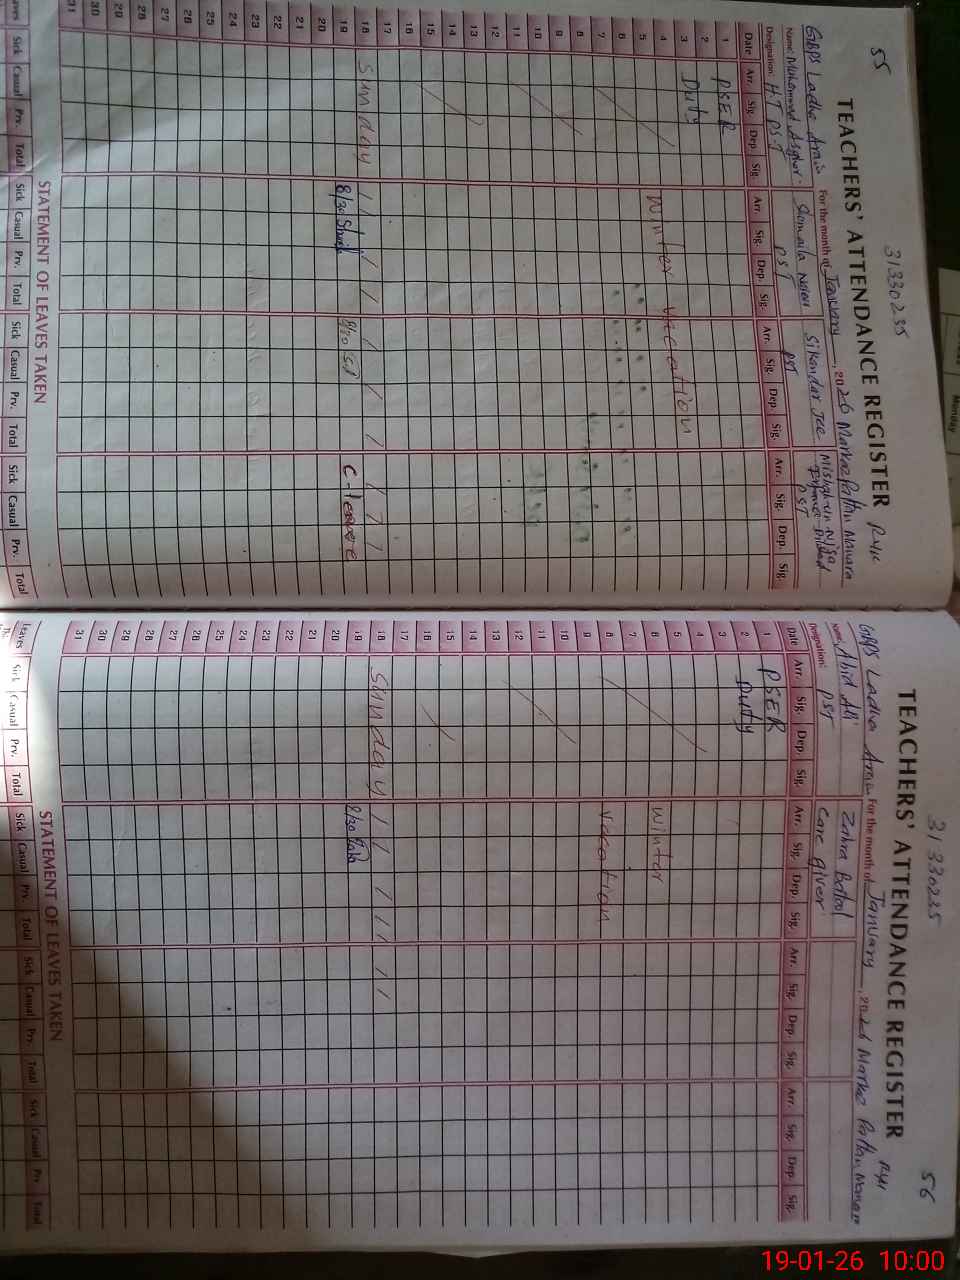 55
31330235
TEACHERS' ATTENDANCE REGISTER
RYK
GBPS Ladha Arain For the month of January, 2026 Markaz Pattan Manara
Name: Muhammad Asghar. Shomaila Sikandar Misbah
Designation: H.T PST PST PST PST
Date Arr. Sig. Dep. Sig. Arr. Sig. Dep. Sig. Arr. Sig. Dep. Sig. Arr. Sig. Dep. Sig.
1 PSER
2
3 Duty
4 Winter Vaccation
5
6
7
8
9
10
11
12
13
14
15
16
17
18 Sunday
19 8/30 8/20 C-leave
20
21
22
23
24
25
26
27
28
29
30
31
STATEMENT OF LEAVES TAKEN
Sick Casual Prv. Total Sick Casual Prv. Total Sick Casual Prv. Total Sick Casual Prv. Total
56
31330235
TEACHERS' ATTENDANCE REGISTER
RYK
GBPS Ladha Arain For the month of January, 2026 Markaz Pattan Manara
Name: Abid Ali Zahra Batool
Designation: PST Care giver
Date Arr. Sig. Dep. Sig. Arr. Sig. Dep. Sig. Arr. Sig. Dep. Sig. Arr. Sig. Dep. Sig.
1 PSER
2 Duty
3
4
5
6 Winter
7
8 Vacation
9
10
11
12
13
14
15
16
17
18 Sunday
19 8/30
20
21
22
23
24
25
26
27
28
29
30
31
STATEMENT OF LEAVES TAKEN
Leaves Sick Casual Prv. Total Sick Casual Prv. Total Sick Casual Prv. Total Sick Casual Prv. Total
Monday
19-01-26 10:00